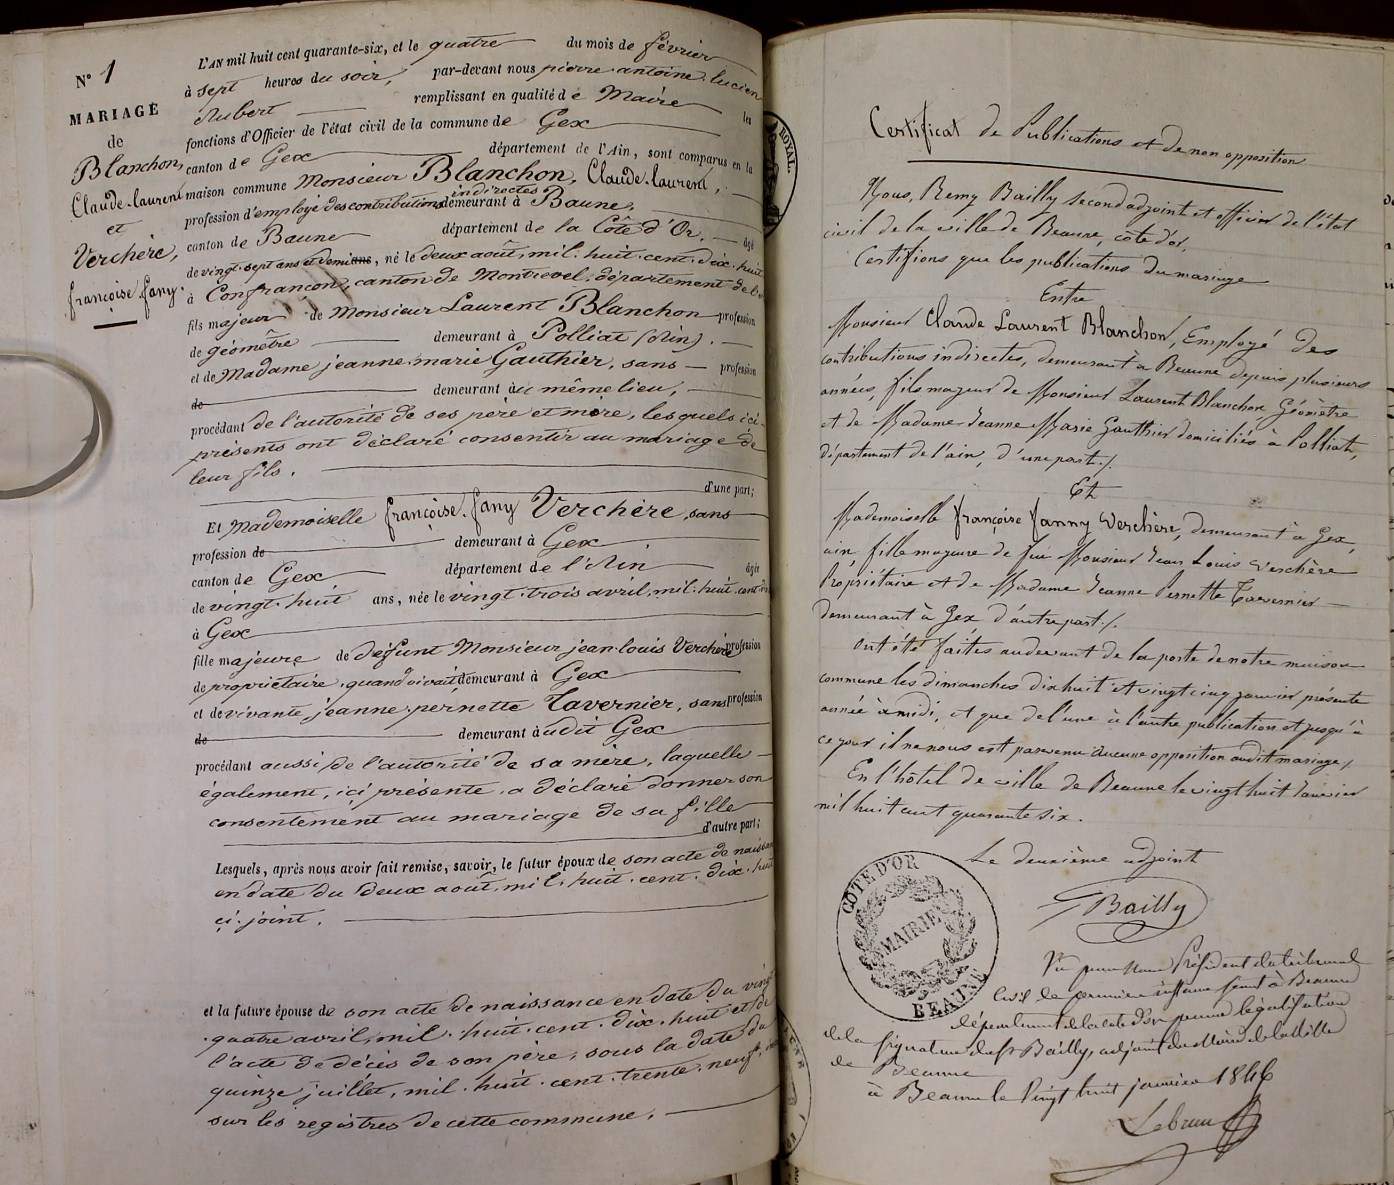 N° 1
MARIAGE
de
Blanchon,
Claude-laurent
et
Verchère,
françoise fany.
L'AN mil huit cent quarante-six, et le quatre du mois de février
à sept heures du soir, par-devant nous pierre-antoine-lucien
Aubert remplissant en qualité de Maire les
fonctions d'Officier de l'état civil de la commune de Gex
canton de Gex département de l'Ain, sont comparus en la
maison commune Monsieur Blanchon, Claude-laurent,
profession d'employé des contributions indirectes demeurant à Baune,
canton de Baune département de la Côte d'Or, âgé
de vingt-sept ans et demi ans, né le deux août, mil-huit-cent-dix-huit
à Confrancon, canton de Montrevel, département de l'
fils majeur de Monsieur Laurent Blanchon profession
de géomètre demeurant à Polliat (Ain).
et de Madame jeanne-marie Gauthier, sans profession
de demeurant au même lieu,
procédant de l'autorité de ses père et mère, lesquels ici-
présents ont déclaré consentir au mariage de
leur fils.
d'une part;
Et Mademoiselle françoise-fany Verchère, sans
profession de demeurant à Gex
canton de Gex département de l'Ain âgée
de vingt-huit ans, née le vingt-trois avril, mil-huit-cent-dix
à Gex
fille majeure de défunt Monsieur jean-louis Verchère profession
de propriétaire, quand vivait demeurant à Gex
et de vivante jeanne-pernette Tavernier, sans profession
de demeurant audit Gex
procédant aussi de l'autorité de sa mère, laquelle
également, ici présente, a déclaré donner son
consentement au mariage de sa fille
d'autre part;
Lesquels, après nous avoir fait remise, savoir, le futur époux de son acte de naissan
en date du deux août, mil-huit-cent-dix-huit
ci-joint.
et la future épouse de son acte de naissance en date du vingt
quatre avril, mil-huit-cent-dix-huit et de
l'acte de décès de son père, sous la date du
quinze juillet, mil-huit-cent-trente-neuf,
sur les registres de cette commune.
ROYAL
Certificat de Publications et de non opposition
Nous, Remy Bailly second adjoint et officier de l'état
civil de la ville de Beaune, côte d'or,
Certifions que les publications du mariage
Entre
Monsieur Claude Laurent Blanchon, Employé des
contributions indirectes, demeurant à Beaune depuis plusieurs
années, fils majeur de Monsieur Laurent Blanchon Géomètre
et de Madame Jeanne Marie Gauthier domiciliés à Polliat,
département de l'ain, d'une part./.
Et
Mademoiselle françoise fanny Verchère, demeurant à Gex,
ain, fille majeure de feu Monsieur Jean Louis Verchère
Propriétaire et de Madame Jeanne Pernette Tavernier
demeurant à Gex d'autre part./.
Ont été faites au devant de la porte de notre maison
commune les dimanches dix huit et vingt cinq janvier présente
année à midi, et que de l'une à l'autre publication et jusqu'à
ce jour il ne nous est parvenu aucune opposition audit mariage./
En l'hôtel de ville de Beaune le vingt huit Janvier
mil huit cent quarante six.
Le deuxième adjoint
Bailly
COTE D'OR
MAIRIE
BEAUNE
Vu par nous Président du tribunal
Civil de première instance séant à Beaune
département de la cote d'or pour légalisation
de la signature du Sr Bailly, adjoint du Maire de la Ville
de Beaune
à Beaune le Vingt huit janvier 1846
Lebrun